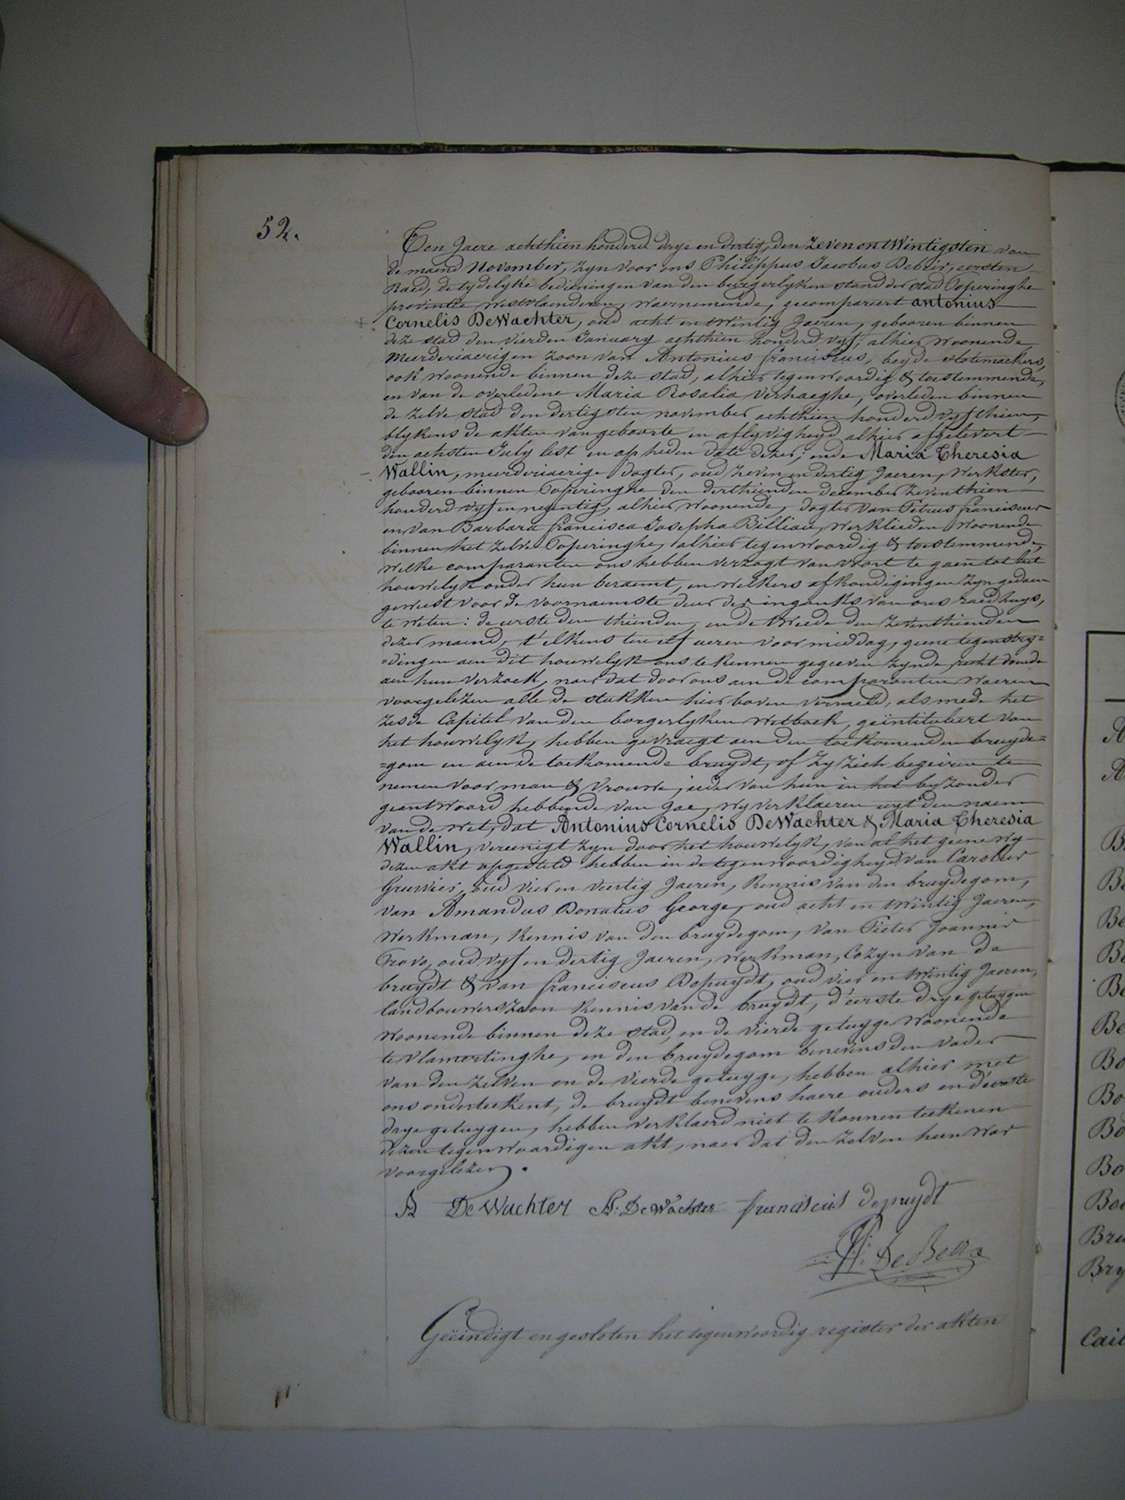 52.
Ten Jaere achthien honderd drye en dertig, den zeven en twintigsten van
de maend November, zyn voor ons Philippus Jacobus Debær, eersten
Raed, de tydelyke bedieningen van den burgerlyken stand der stad Poperinghe
provintie Westvlaendren, waernemende, gecompareert antonius
Cornelis DeWachter, oud acht en twintig Jaeren, gebooren binnen
deze stad den vierden January achthien honderd vyf, alhier woonende
Meerderiaerigen zoon van Antonius franciscus, beyde slotemackers,
ook woonende binnen deze stad, alhier tegenwoordig & toestemmende,
en van de overledene Maria Rosalia Verhaeghe, overleden binnen
de zelve stad den dertigsten november achthien honderd vyfthien,
blykens de akten van geboorte en aflyvigheyd alhier afgelevert
den achsten July lest en op heden date dezer; ende Maria Theresia
Wallin, meerderiaerige dogter, oud zeven en dertig Jaeren, Werkster,
gebooren binnen Poperinghe den derthienden december zeventhien
honderd vyf en negentig, alhier woonende, dogter van Petrus franciscus
en van Barbara francisca Josepha Billiau, werklieden, woonende
binnen het zelve Poperinghe, alhier tegenwoordig & toestemmende,
welke comparanten ons hebben verzogt van voort te gaen tot het
houwelyk onder hun beraemt, en welkers afkondigingen zyn gedaen
geweest voor de voornaemste deur der ingank van ons raedhuys,
te weten: de eerste den thienden, en de tweede den zeventhienden
dezer maend, t'elkens ten elf ueren voormiddag, geene tegenstry=
=dingen aen dit houwelyk ons te kennen gegeeven zynde, recht doende
aen hun verzoek, naer dat door ons aen de comparanten waeren
voorgelezen alle de stukken hier boven vermeld, als mede het
zesde Capitel van den borgerlyken wetboek, geïntituleert van
het houwelyk, hebben gevraegt aen den toekomenden bruyde=
=gom en aen de toekomende bruydt, of zy zich begeiren te
nemen voor man & vrouwe, ieder van hun in het byzonder
geantwoord hebbende van Jae, wy verklaeren uyt den naem
van de wet, dat Antonius Cornelis DeWachter & Maria Theresia
Wallin, vereenigt zyn door het houwelyk, van al het geene wy
dezen akt opgesteld hebben in de tegenwoordigheyd van Carolus
oud vier en veertig Jaeren, Kennis van den bruydegom,
van Amandus Donatus George, oud acht en twintig Jaeren,
Werkman, Kennis van den bruydegom, van Pieter Joannis
oud vyf en dertig Jaeren, Werkman, Cozyn van de
bruydt & van franciscus Depuydt, oud vier en twintig Jaeren,
landbouwerszoon Kennis van de bruydt, d'eerste drye getuygen
woonende binnen deze stad, en de vierde getuyge woonende
te Vlamertinghe, en den bruydegom benevens den vader
van den zelven en de vierde getuyge, hebben alhier met
ons onderteekent, de bruydt benevens haere ouders en d'eerste
drye getuygen, hebben verklaerd niet te konnen teekenen
dezen tegenwoordigen akt, naer dat den zelven hun was
voorgelezen.
A DeWachter A. DeWachter franciscus depuydt
Geëindigt en gesloten het tegenwoordig register der akten